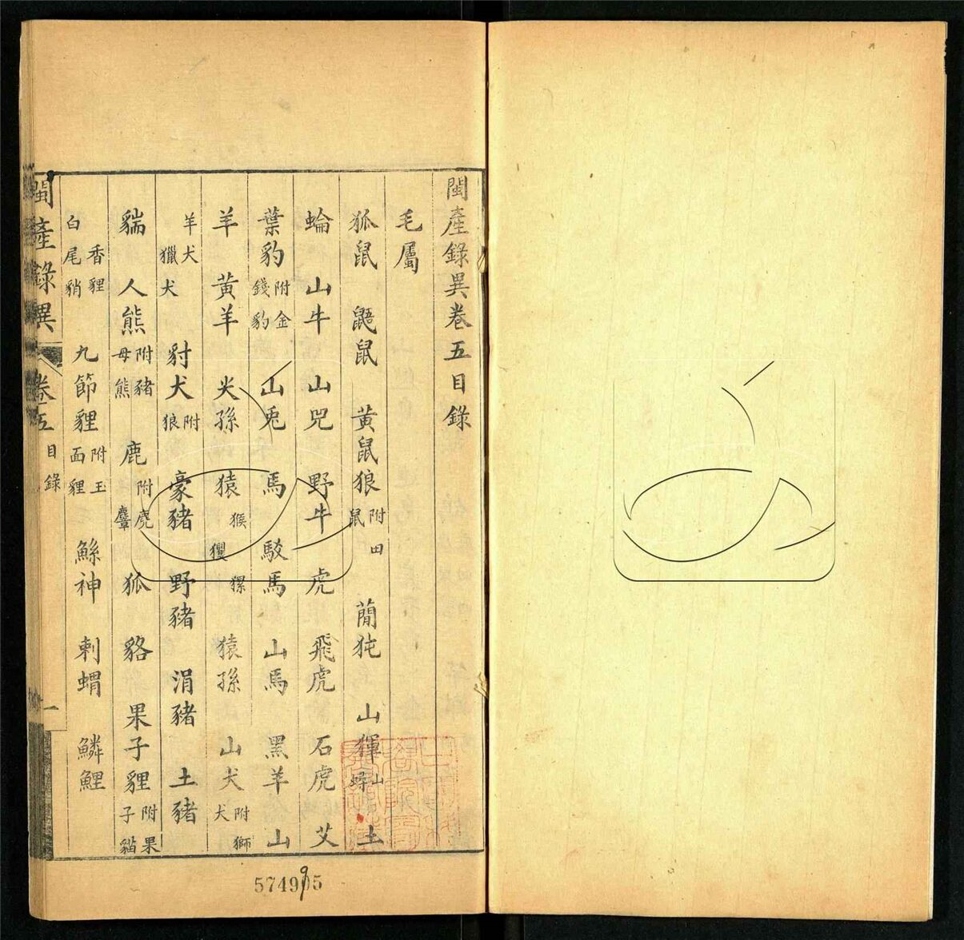 閩產錄異卷五目錄
毛屬
狐鼠 鼯鼠 黃鼠狼 附田鼠 蕳㹠 山獋 土
山牛 山兕 野牛 虎 飛虎 石虎 艾
葉豹 附金錢豹 山兎 馬 駁馬 山馬 黑羊 山
羊 黃羊 火孫 猿 猴 玃 猓 猿孫 山犬 附獅犬
羊犬 獵犬 豺犬 附狼 豪豬 野豬 涓豬 土豬
貒 人熊 附豬母熊 鹿 附麂麞 狐 貉 果子貍 附果子貓
香貍 白尾䝔 九節貍 附玉面貍 鯀神 刺蝟 鱗鯉
閩產錄異 卷五 目錄 一
574995